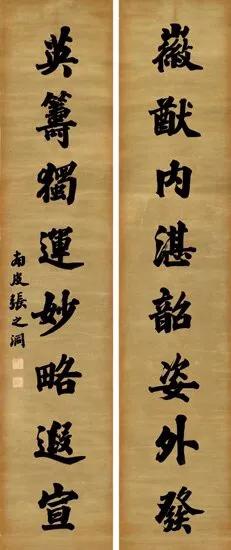 徽猷内湛韶姿外發
英籌獨運妙略遐宣
南皮張之洞